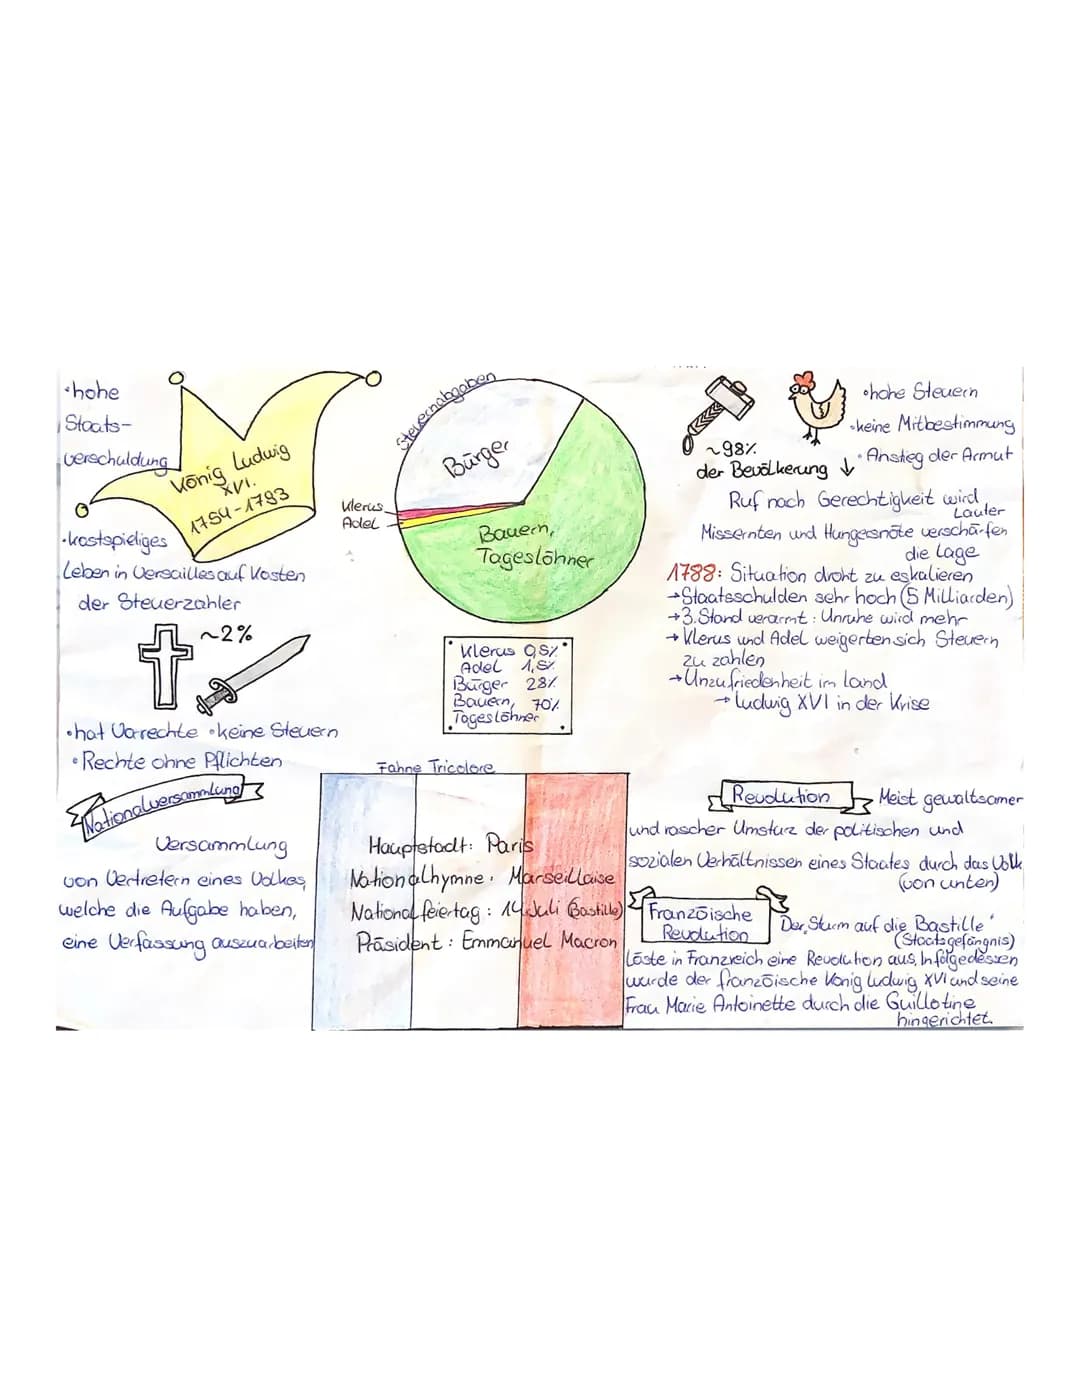 •hohe
Staats-
verschuldung
König Ludwig
XVI.
1754-1793
•kostspieliges
Leben in Versailles auf Kosten
der Steuerzahler
~2%
•hat Vorrechte •keine Steuern
•Rechte ohne Pflichten
Steuernabgaben
Bürger
Klerus
Adel
Bauern,
Tageslöhner
Klerus 0,5%
Adel 1,5%
Bürger 28%
Bauern, 70%
Tageslöhner
~98%
der Bevölkerung ↓
•hohe Steuern
•keine Mitbestimmung
•Anstieg der Armut
Ruf nach Gerechtigkeit wird
Lauter
Missernten und Hungersnöte verschärfen
die Lage
1788: Situation droht zu eskalieren
→Staatsschulden sehr hoch (5 Milliarden)
→3. Stand verarmt: Unruhe wird mehr
→Klerus und Adel weigerten sich Steuern
zu zahlen
→Unzufriedenheit im Land
→Ludwig XVI in der Krise
Nationalversammlung
Versammlung
von Vertretern eines Volkes,
welche die Aufgabe haben,
eine Verfassung auszuarbeiten
Fahne Tricolore
Hauptstadt: Paris
Nationalhymne: Marseillaise
Nationalfeiertag: 14. Juli (Bastille)
Präsident: Emmanuel Macron
Revolution
Meist gewaltsamer
und rascher Umsturz der politischen und
sozialen Verhältnissen eines Staates durch das Volk
(von unten)
Französische
Revolution
Der „Sturm auf die Bastille“
(Staatsgefängnis)
Löste in Frankreich eine Revolution aus. Infolgedessen
wurde der französische König Ludwig XVI und seine
Frau Marie Antoinette durch die Guillotine
hingerichtet.